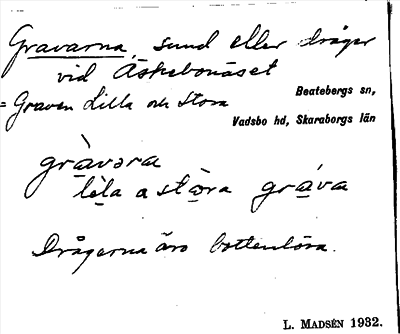 Gravarna, sund eller dråger
vid Äskebonäset
= Graven Lilla och Stora
Beatebergs sn,
Vadsbo hd, Skaraborgs län
gràvəra
lìla a stòra gráva
Drågerna äro bottenlösa.
L. MADSÉN 1932.